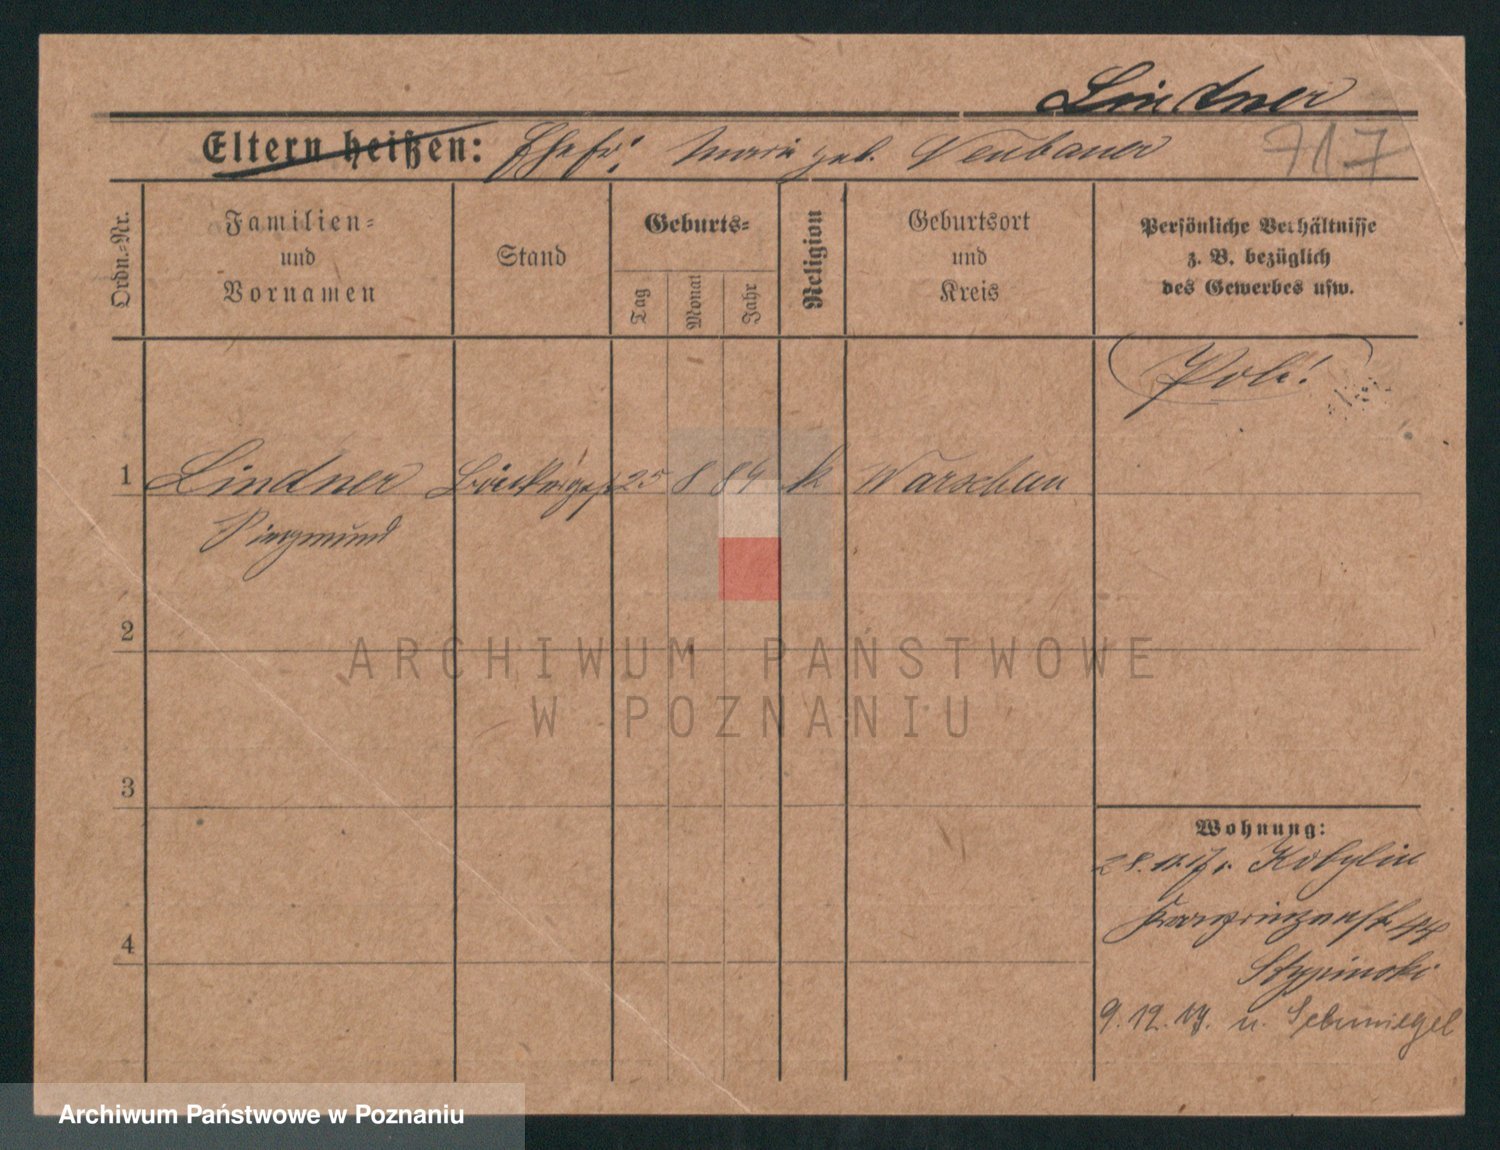 Lindner
Eltern heißen: Ehefr: Maria geb. Neubauer 717
Ordn.-Nr.
Familien-
und
Vornamen
Stand
Geburts-
Tag
Monat
Jahr
Religion
Geburtsort
und
Kreis
Persönliche Verhältnisse
z. B. bezüglich
des Gewerbes usw.
Pole!
1 Lindner 25 8 84 k Warschau
2
3
4
Wohnung:
Kobylin
Kronprinzenst. 44
Stypinski
9.12.17. n. Schmiegel
ARCHIWUM PAŃSTWOWE
W POZNANIU
Archiwum Państwowe w Poznaniu